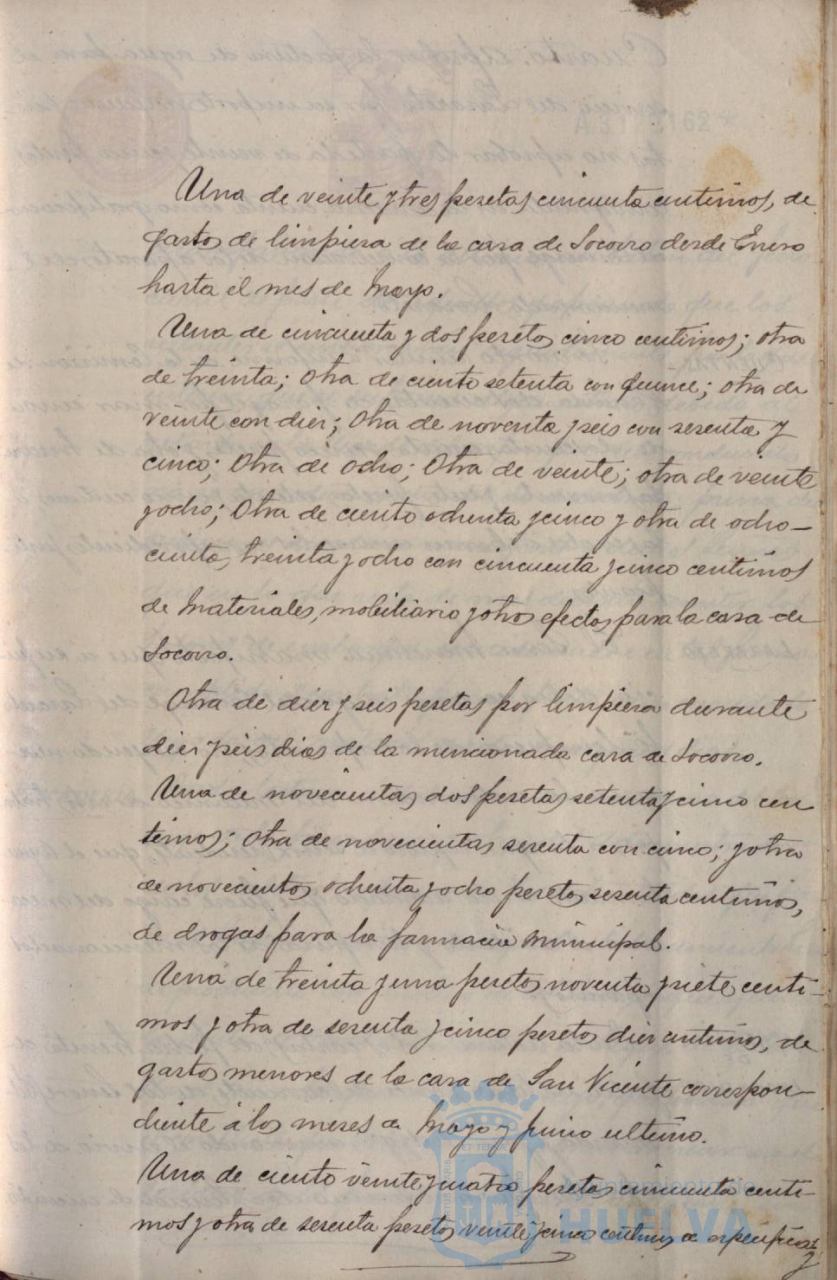 Una de veinte y tres pesetas cincuenta centimos, de
gastos de limpieza de la casa de Socorro desde Enero
hasta el mes de Mayo.
Una de cincuenta y dos pesetas cinco centimos; otra
de treinta; otra de ciento setenta con quince; otra de
veinte con diez; otra de noventa y seis con sesenta y
cinco; otra de ocho; otra de veinte; otra de veinte
y ocho; otra de ciento ochenta y cinco y otra de ocho-
cientas treinta y ocho con cincuenta y cinco centimos
de materiales, mobiliario y otros efectos para la casa de
Socorro.
Otra de diez y seis pesetas por limpieza durante
diez y seis dias de la mencionada casa de Socorro.
Una de novecientas dos pesetas setenta y cinco cen
timos; otra de novecientas sesenta con cinco; y otra
de novecientos ochenta y ocho pesetas sesenta centimos,
de drogas para la farmacia Municipal.
Una de treinta y una pesetas noventa y siete centi-
mos y otra de sesenta y cinco pesetas diez centimos, de
gastos menores de la casa de San Vicente correspon-
diente á los meses de Mayo y Junio ultimo.
Una de ciento veinte y cuatro pesetas cincuenta centi-
mos y otra de sesenta pesetas veinte y cinco centimos de
HUELVA